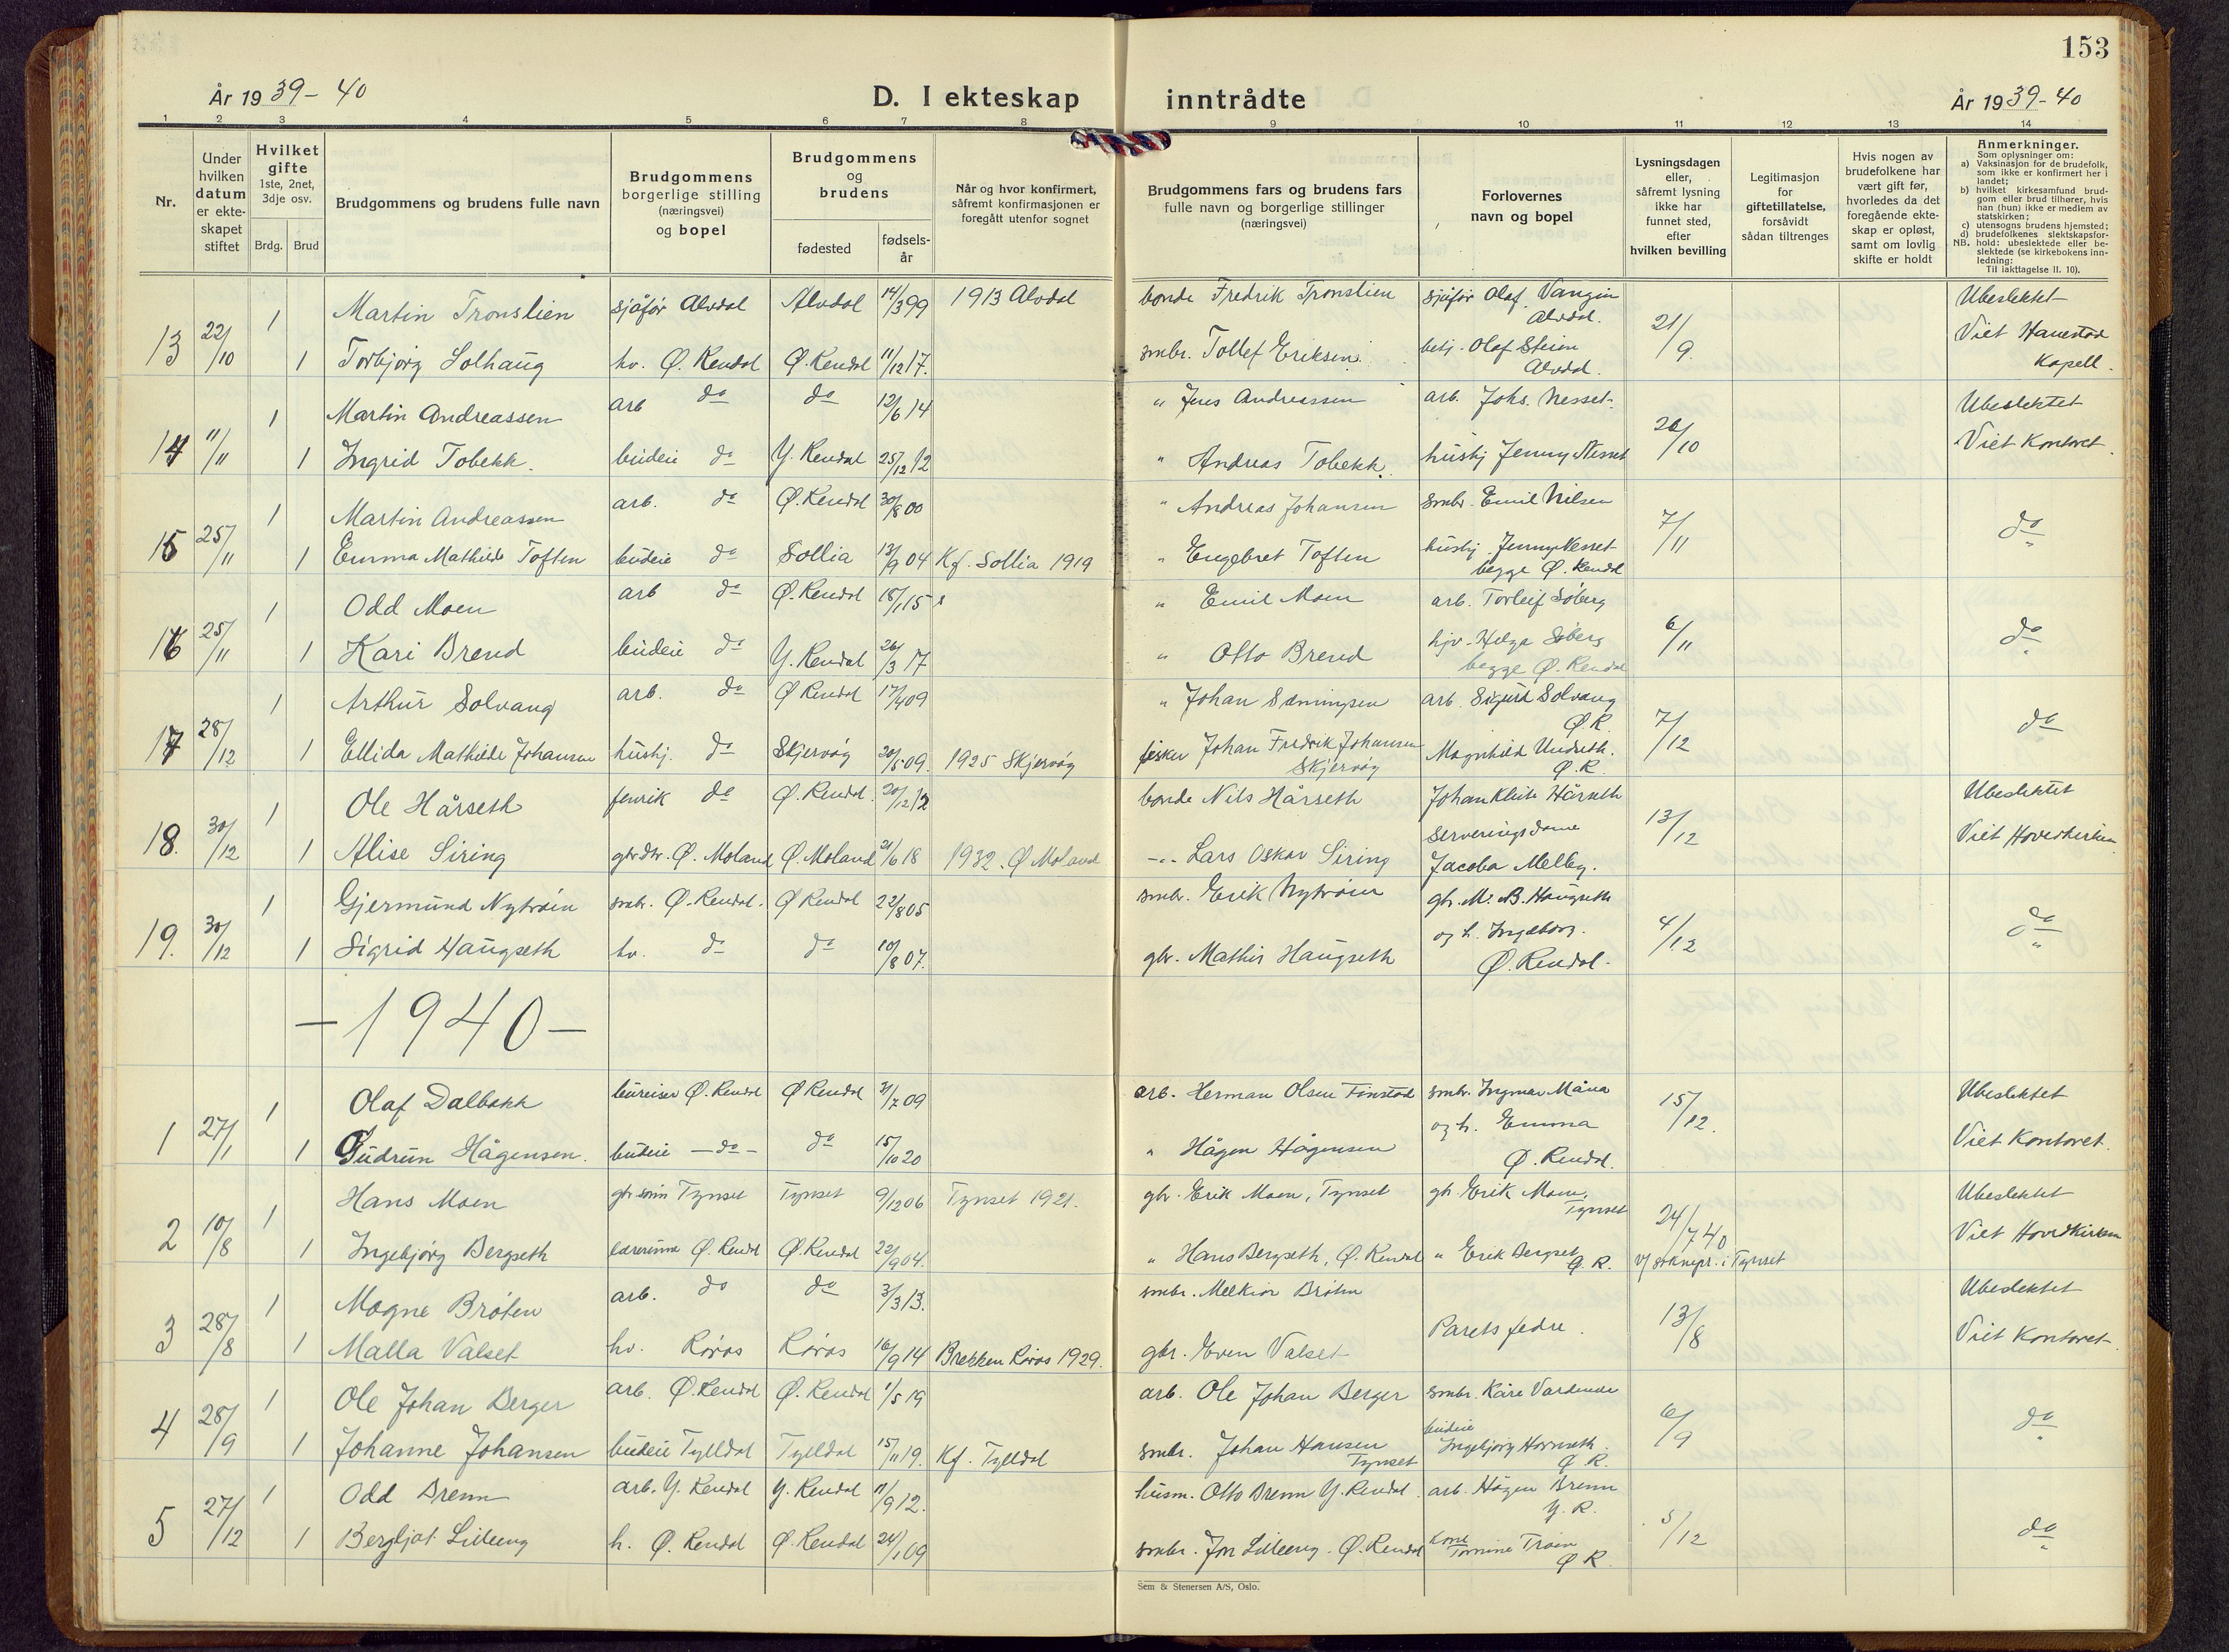 153
År 19 39-40
D. I ekteskap inntrådte
År 19 39-40
1 2 3 4 5 6 7 8 9 10 11 12 13 14
Nr.
Under hvilken datum er ekte-skapet stiftet
Hvilket gifte
1ste, 2net, 3dje osv.
Brdg. Brud
Brudgommens og brudens fulle navn
Brudgommens borgerlige stilling (næringsvei) og bopel
Brudgommens og brudens
fødested
fødsels-år
Når og hvor konfirmert, såfremt konfirmasjonen er foregått utenfor sognet
Brudgommens fars og brudens fars
fulle navn og borgerlige stillinger
(næringsvei)
Forlovernes
navn og bopel
Lysningsdagen eller, såfremt lysning ikke har funnet sted, efter hvilken bevilling
Legitimasjon for giftetillatelse, forsåvidt sådan tiltrenges
Hvis nogen av brudefolkene har vært gift før, hvorledes da det foregående ekte-skap er opløst, samt om lovlig skifte er holdt
Anmerkninger.
Som oplysninger om:
a) Vaksinasjon for de brudefolk, som ikke er konfirmert her i landet;
b) hvilket kirkesamfund brud-gom eller brud tilhører, hvis han (hun) ikke er medlem av statskirken;
c) utensogns brudens hjemsted;
d) brudefolkenes slektskapsfor-
NB. hold: ubeslektede eller be-slektede (se kirkebokens inn-ledning:
Til iakttagelse II. 10).
13 22/10 1 Martin Tronslien sjåfør Alvdal Alvdal 14/3 99 1913 Alvdal bonde Fredrik Tronslien sjåfør Olaf Vangen Alvdal. 21/9 Ubeslektet
1 Torbjørg Solhaug hv. Ø. Rendal Ø. Rendal 11/12 17. smbr. Tollef Eriksen betj. Olaf Steien Alvdal. Viet Hanestad Kapell.
14 11/11 1 Martin Andreassen arb do do 12/6 14 " Jens Andreassen arb. Johs. Nesset. 26/10 Ubeslektet
1 Ingrid Tobekk. budeie do Y. Rendal 25/12 12 " Andreas Tobekk. hushj Jenny Nesset Viet Kontoret.
15 25/11 1 Martin Andreassen arb. do Ø. Rendal 30/8 00 " Andreas Johansen smbr. Emil Nilsen 7/11 do
1 Emma Mathilde Toften budeie do Sollia 13/9 04 Kf. Sollia 1919 " Engebret Toften hushj. Jenny Nesset begge Ø. Rendal "
16 25/11 1 Odd Moen arb do Ø. Rendal 18/1 15 " Emil Moen arb. Torleif Søberg 6/11 do
1 Kari Brend budeie do Y. Rendal 26/3 17 " Otto Brend hjv. Helga Søberg begge Ø. Rendal "
17 28/12 1 Arthur Solvang arb. do Ø Rendal 17/4 09 " Johan Sæmingsen arb. Sigurd Solvang Ø R. 7/12 do
1 Ellida Mathilde Johansen hushj. do Skjervøy 20/5 09. 1925 Skjervøy fisker Johan Fredrik Johansen Skjervøy Magnhild Undseth. Ø. R.
18. 30/12 1 Ole Hårseth fenrik do Ø. Rendal. 20/12 12 bonde Nils Hårseth Johan Hårseth 13/12 Ubeslektet
1 Alise Siring gbrdtr. Ø. Moland Ø. Moland 21/6 18 1932. Ø Moland -"- Lars Oskar Siring Serveringsdame Jacoba Melby. Viet Hovedkirken.
19. 30/12 1 Gjermund Nytrøen smbr. Ø. Rendal. Ø Rendal 22/8 05 smbr. Erik Nytrøen gbr. M. B. Haugseth 4/12 do
1 Sigrid Haugseth hv. do do 10/8 07. gbr. Mathis Haugseth og h. Ingeborg. Ø. Rendal. "
— 1940 —
1 27/1 1 Olaf Dalbakk bureiser Ø. Rendal Ø Rendal 31/7 09 arb. Herman Olsen Finstad smbr. Ingmar Måna 15/12. Ubeslektet
1 Gudrun Hågensen. budeie — do — do 15/10 20 " Hågen Hågensen og h. Emma Ø. Rendal. Viet Kontoret.
2 10/8 1 Hans Moen gbrsønn Tynset Tynset 9/12 06 Tynset 1921. gbr. Erik Moen, Tynset gbr. Erik Moen, Tynset 24/7 40 Ubeslektet
1 Ingebjørg Bergseth lærerinne Ø. Rendal Ø. Rendal 22/9 04. " Hans Bergseth, Ø. Rendal " Erik Bergset Ø. R. v/ soknepr. i Tynset Viet Hovedkirken
3 28/8 1 Magne Bråten arb. do do 3/3 13. smbr. Melkior Bråten Parets fedre. 13/8 Ubeslektet
1 Malla Valset hv. Røros Røros 16/9 14 Brekken Røros 1929. gbr. Even Valset Viet Kontoret.
4 28/9 1 Ole Johan Berger arb. Ø. Rendal Ø. Rendal 1/5 19 arb. Ole Johan Berger smbr. Kåre Vardende 6/9 do
1 Johanne Johansen budeie Tylldal Tylldal 15/11 19. Kf. Tylldal smbr. Johan Hansen Tynset budeie Ingebjørg Hornseth. Ø R. "
5 27/12 1 Odd Brenn arb. Y. Rendal Y. Rendal 11/9 12. husm. Otto Brenn Y. Rendal. arb. Hågen Brenn Y. R. 5/12 do
1 Bergljot Lilleeng h. Ø. Rendal Ø. Rendal 24/1 09 smbr. Jon Lilleeng. Ø. Rendal kone Tomine Trøen Ø R. "
Sem & Stenersen A/S, Oslo.